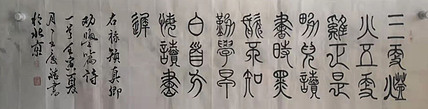 三更燈
火五更
雞正是
男兒讀
書時黑
髮不知
勤學早
白首方
悔讀書
遲
右錄顏真卿
勸學篇詩
一首
於北京